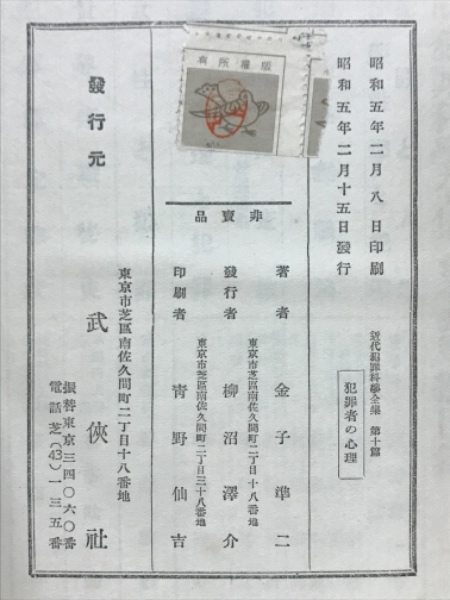 昭和五年二月八日印刷
昭和五年二月十五日發行
近代犯罪科學全集 第十篇
犯罪者の心理
版權所有
非賣品
著者 金子準二
東京市芝區南佐久間町二丁目十八番地
發行者 柳沼澤介
東京市芝區南佐久間町二丁目三十八番地
印刷者 青野仙吉
發行元
東京市芝區南佐久間町二丁目十八番地
武俠社
振替東京三四〇六〇番
電話芝(43)一三五番